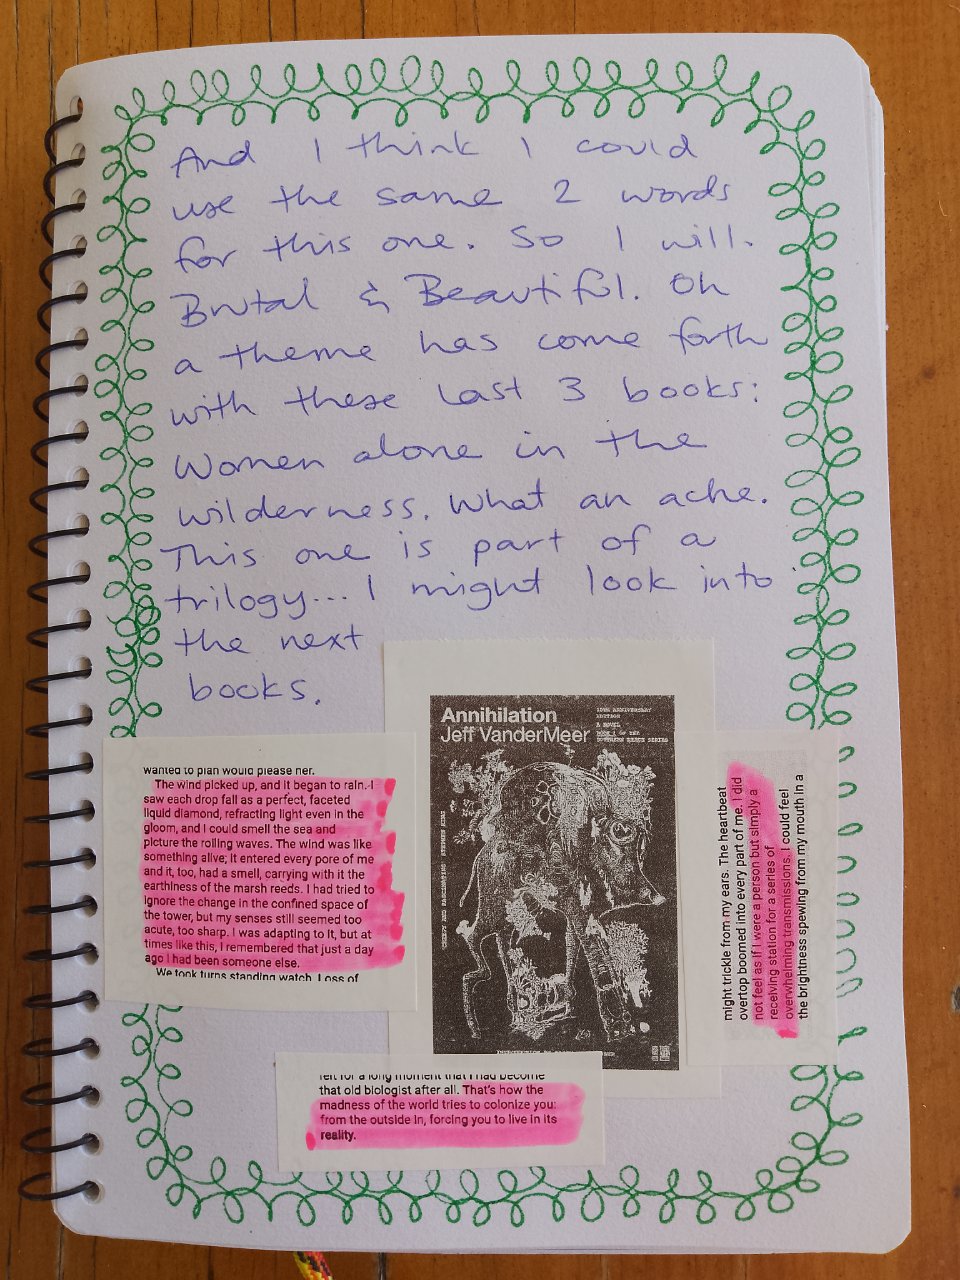 And I think I could
use the same 2 words
for this one. So I will.
Brutal & Beautiful. Oh
a theme has come forth
with these last 3 books:
Women alone in the
wilderness. What an ache.
This one is part of a
trilogy... I might look into
the next
books.
Annihilation
Jeff VanderMeer
10TH ANNIVERSARY
EDITION
A NOVEL
BOOK 1 OF THE
SOUTHERN REACH SERIES
wanted to plan would please her.
The wind picked up, and it began to rain. I
saw each drop fall as a perfect, faceted
liquid diamond, refracting light even in the
gloom, and I could smell the sea and
picture the rolling waves. The wind was like
something alive; it entered every pore of me
and it, too, had a smell, carrying with it the
earthiness of the marsh reeds. I had tried to
ignore the change in the confined space of
the tower, but my senses still seemed too
acute, too sharp. I was adapting to it, but at
times like this, I remembered that just a day
ago I had been someone else.
We took turns standing watch. Loss of
might trickle from my ears. The heartbeat
overtop boomed into every part of me. I did
not feel as if I were a person but simply a
receiving station for a series of
overwhelming transmissions. I could feel
the brightness spewing from my mouth in a
felt for a long moment that I had become
that old biologist after all. That's how the
madness of the world tries to colonize you:
from the outside in, forcing you to live in its
reality.